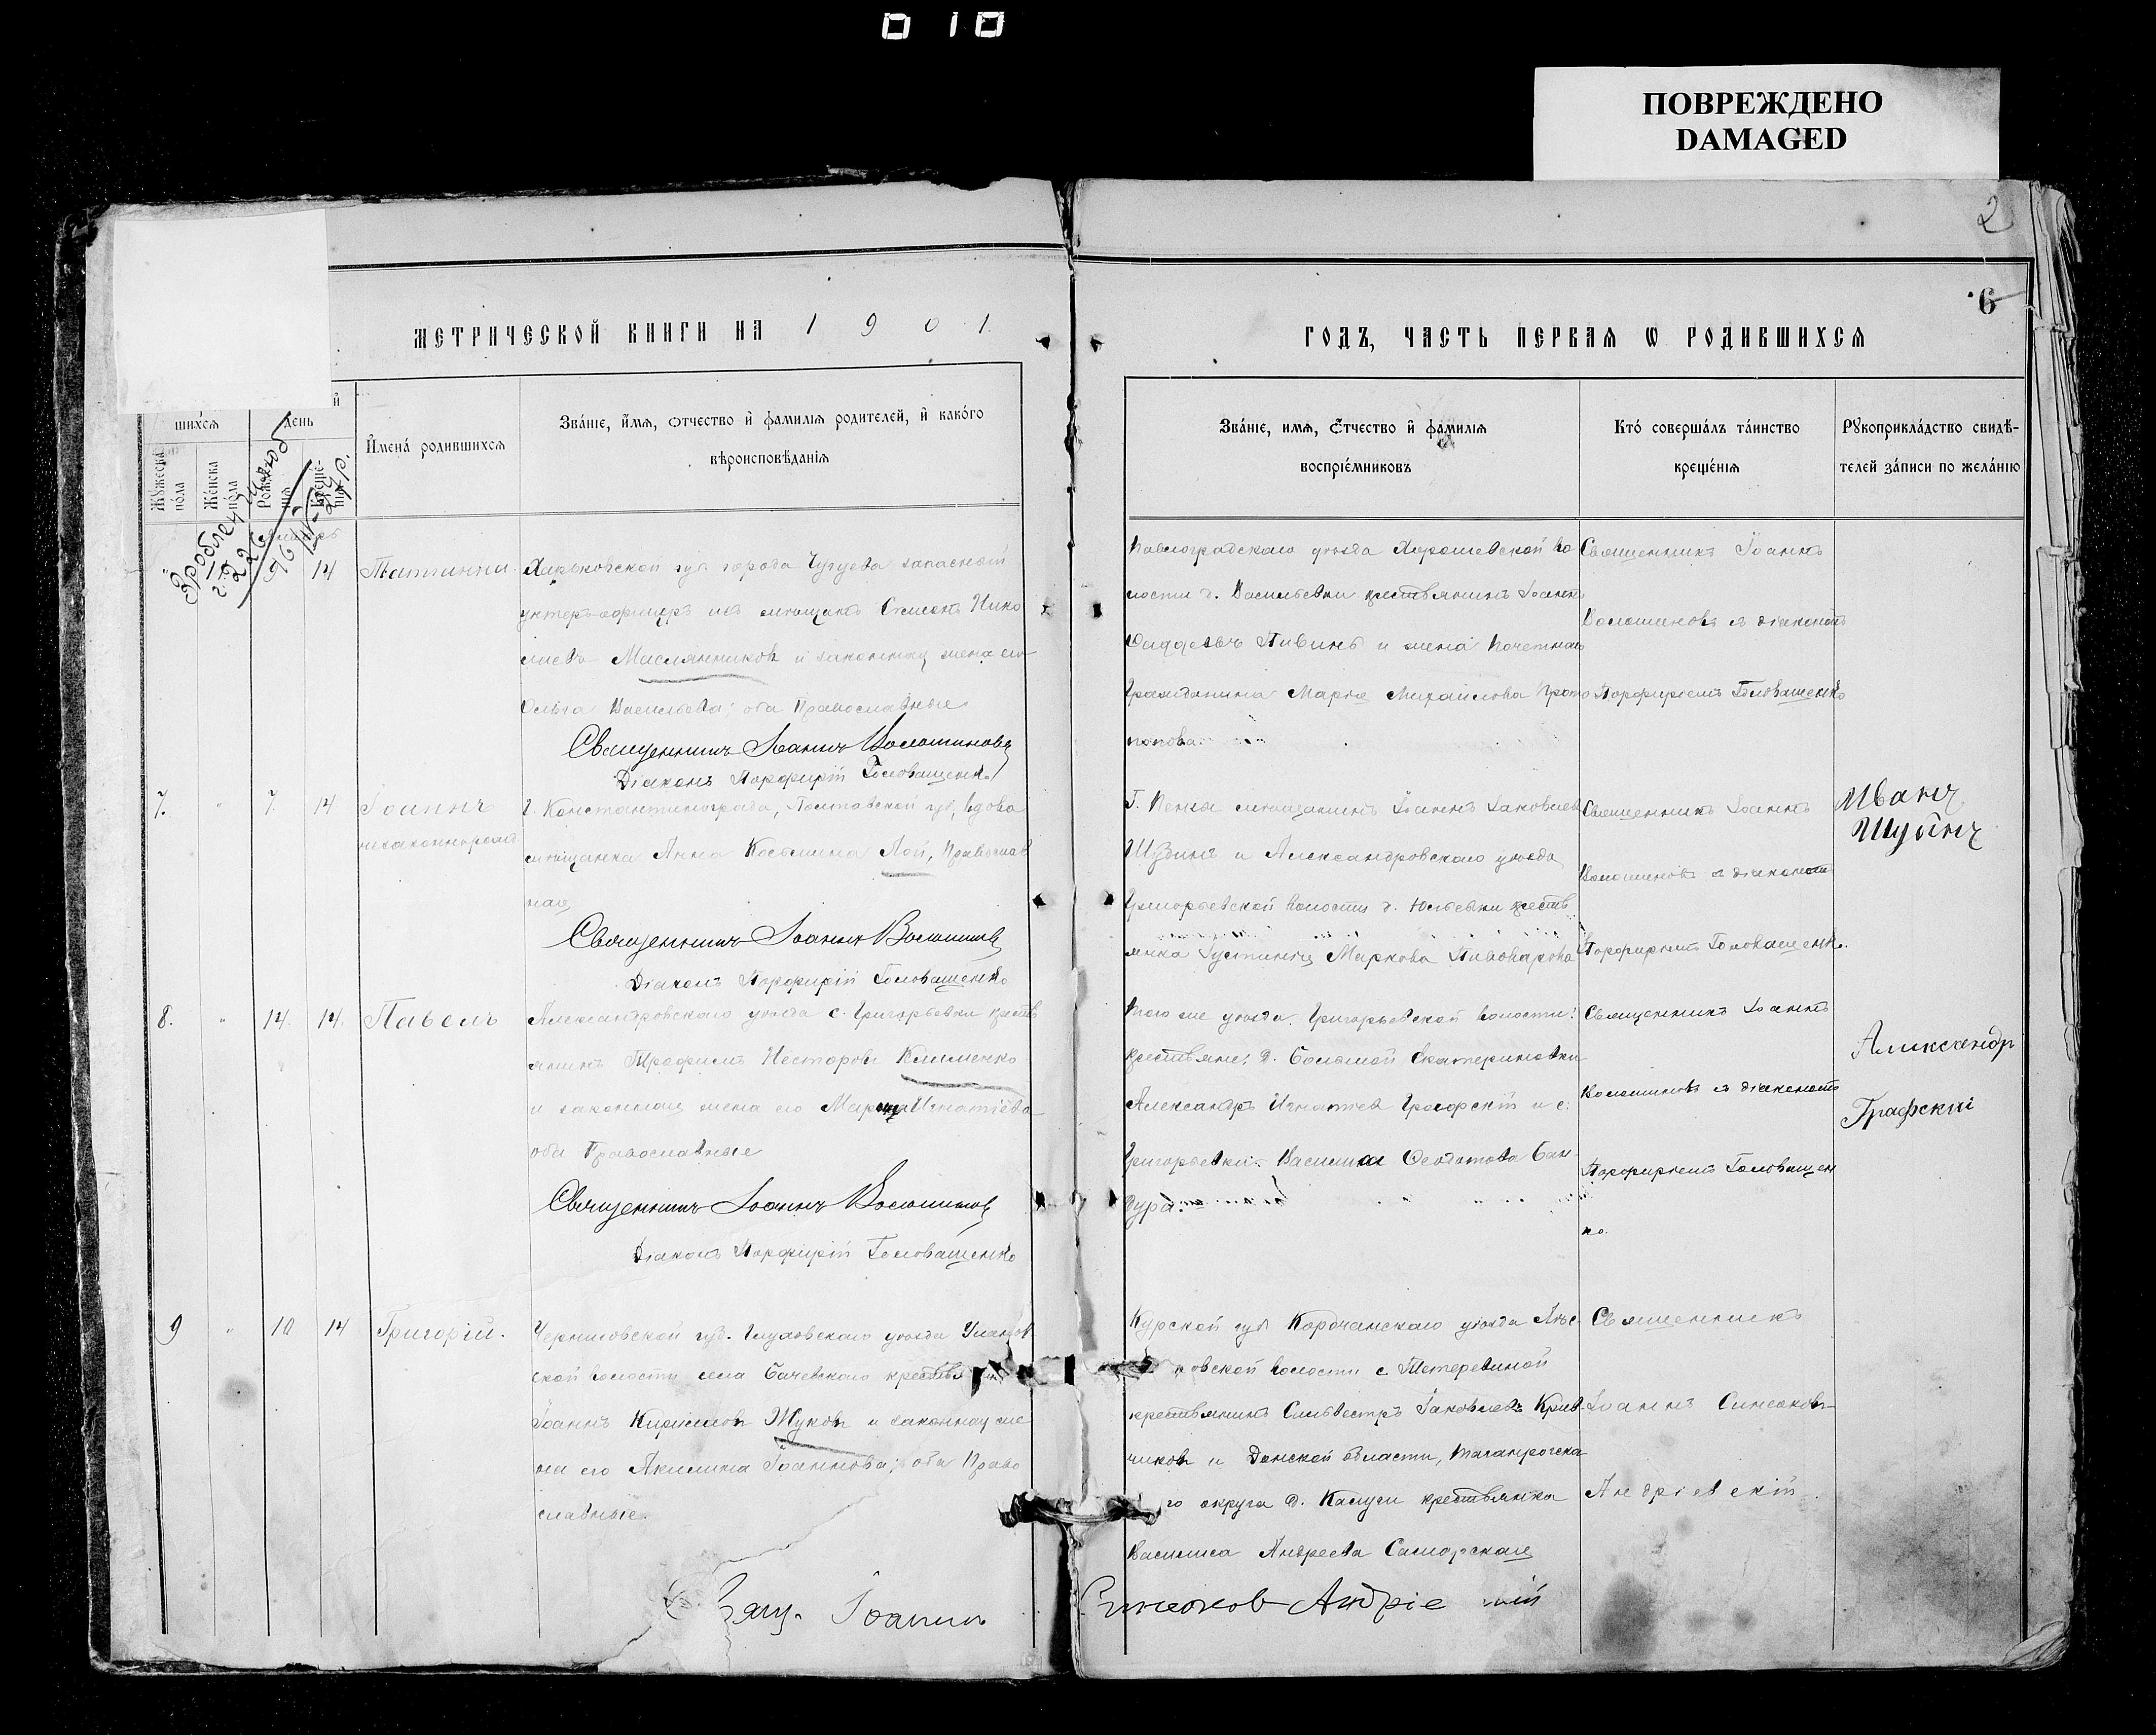 ПОВРЕЖДЕНО
DAMAGED
2
6
МЕТРИЧЕСКОЙ КНИГИ НА 1901
ГОДЪ, ЧАСТЬ ПЕРВАЯ Ѡ РОДИВШИХСЯ
шихся
день
Мужеска пола
Женска пола
Рожденія
Крещенія
Имена родившихся
Званіе, имя, отчество и фамилія родителей, и какого
вѣроисповѣданія
Званіе, имя, отчество и фамилія
воспріемниковъ
Кто совершалъ таинство
крещенія
Рукоприкладство свидѣ-
телей записи по желанію
14
Татіанна
Харьковской губ города Чугуева запасный
унтеръ-офицеръ изъ мѣщанъ Симеонъ Нико
лаевъ Маслянниковъ и законная жена его
Ольга Васильева; оба Православные
Священникъ Іоаннъ Волошиновъ
Діаконъ Порфирій Головащенко
Павлоградскаго уѣзда Хорошевской во
лости д. Васильевки крестьянинъ Іоаннъ
Фаддеевъ Пивинъ и жена Почетнаго
Гражданина Марія Михайлова Прото
попова.
Священникъ Іоаннъ
Волошиновъ съ діакономъ
Порфиріемъ Головащенко
7. " 7 14
Іоаннъ
незаконнорожд
г. Константинограда, Полтавской губ, вдова
мѣщанка Анна Косьмина Лой, Православ
ная
Священникъ Іоаннъ Волошиновъ
Діаконъ Порфирій Головащенко
Г. Пензы мѣщанинъ Іоаннъ Іаковлевъ
Шубинъ и Александровскаго уѣзда
Григорьевской волости д. Юльевки кресть
янка Іустинія Маркова Пивоварова
Священникъ Іоаннъ
Волошиновъ съ діакономъ
Порфиріемъ Головащенко.
Иванъ
Шубинъ
8. " 14. 14.
Павелъ
Александровскаго уѣзда с. Григорьевки кресть
янинъ Трофимъ Несторовъ Клименко
и законная жена его Марія Игнатіева
оба Православные
Священникъ Іоаннъ Волошиновъ
Діаконъ Порфирій Головащенко
Того же уѣзда Григорьевской волости:
крестьяне: д. Большой Екатериновки
Александръ Игнатіев Графскій и с.
Григорьевки Василиса Феодотова Бан
дура.
Священникъ Іоаннъ
Волошиновъ съ діакономъ
Порфиріемъ Головащен
ко.
Александр
Графский
9 " 10 14
Григорій.
Черниговской губ. Глуховскаго уѣзда Уланов
ской волости села Бачевскаго крестьянинъ
Іоаннъ Кирилловъ Жуковъ и законная же
на его Акилина Іоаннова; оба Право
славные.
Курской губ Корочанскаго уѣзда
овской волости с. Тетеревиной
крестьянинъ Сильвестръ Іаковлевъ Крив
чиковъ и Донской области, Таганрогска
го округа д. Калуги крестьянка
Василиса Андреева Самарская
Священникъ
Іоаннъ Синеоковъ
Андріевскій
Свящ. Іоаннъ Синеоков Андріе кій